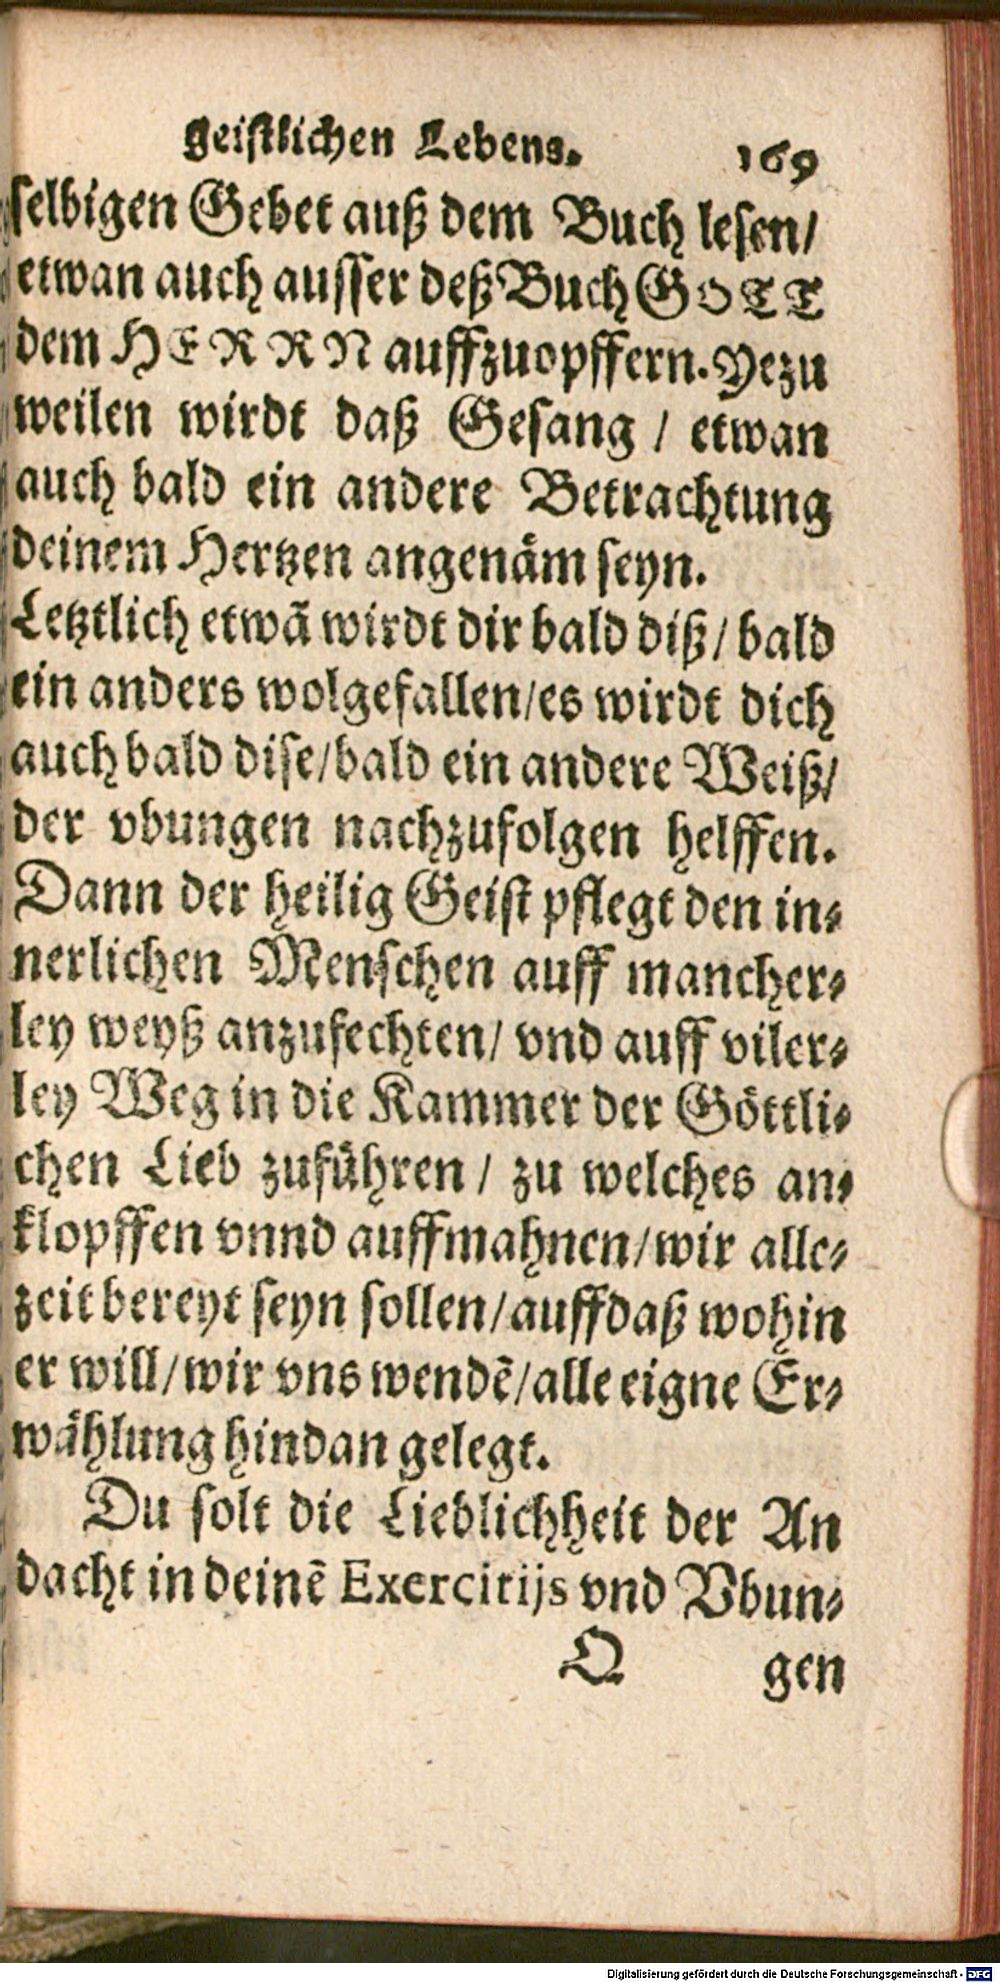 geistlichen Lebens. 169
selbigen Gebet auß dem Buch lesen/
etwan auch ausser deß Buch GOTT
dem HERRN auffzuopffern. Yezu
weilen wirdt daß Gesang / etwan
auch bald ein andere Betrachtung
deinem Hertzen angenäm seyn.
Letztlich etwã wirdt dir bald diß / bald
ein anders wolgefallen/es wirdt dich
auch bald dise/bald ein andere Weiß/
der vbungen nachzufolgen helffen.
Dann der heilig Geist pflegt den in⸗
nerlichen Menschen auff mancher⸗
ley weyß anzufechten/ vnd auff viler⸗
ley Weg in die Kammer der Göttli⸗
chen Lieb zuführen / zu welches an⸗
klopffen vnnd auffmahnen/wir alle⸗
zeit bereyt seyn sollen/auffdaß wohin
er will/wir vns wendẽ/alle eigne Er⸗
wählung hindan gelegt.
Du solt die Lieblichheit der An
dacht in deinẽ Exercitijs vnd Vbun⸗
Q gen
Digitalisierung gefördert durch die Deutsche Forschungsgemeinschaft - DFG